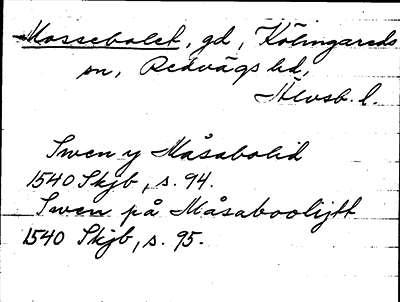 Mossebolet, gd, Kölingareds
sn, Redvägs hd,
Älvsb. l.
Swen y Måsabolid
1540 Skjb, s. 94.
Swen på Måsaboolijtt
1540 Skjb, s. 95.